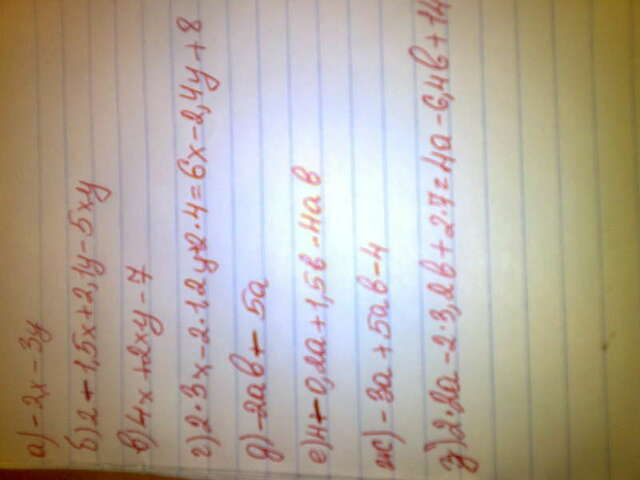 а) -2x-3y
б) 2-1,5x+2,1y-5xy
в) 4x+2xy-7
г) 2·3x-2·1,2y+2·4=6x-2,4y+8
д) -2ab-5a
е) 4-0,2a+1,5b-4ab
ж) -3a+5ab-4
з) 2·2a-2·3,2b+2·7=4a-6,4b+14